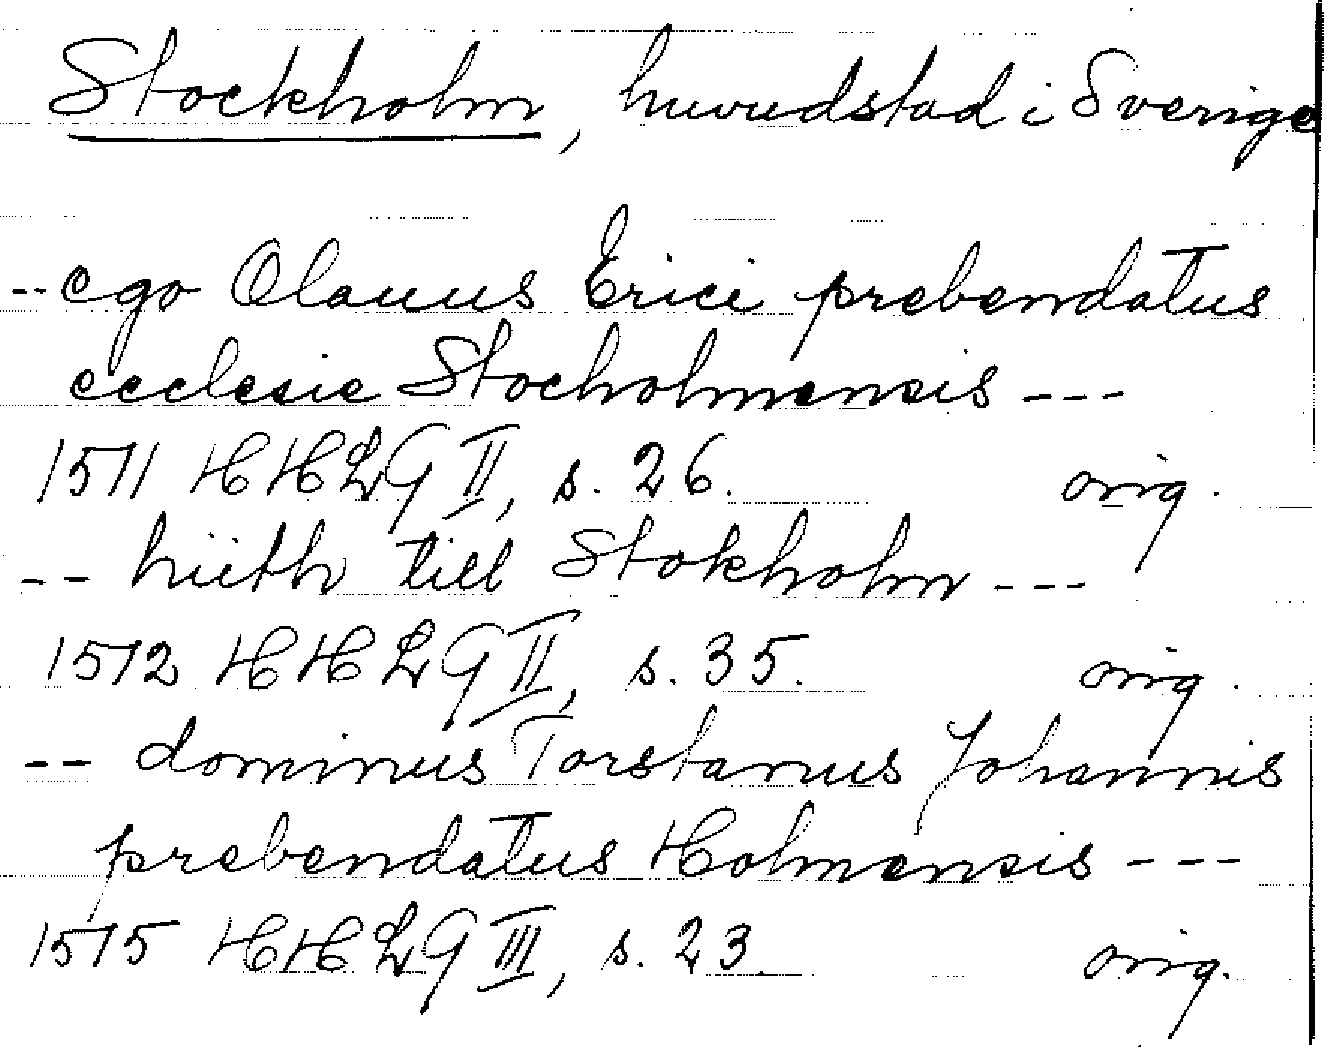 Stockholm, huvudstad i Sverige
-- ego Olauus Erici prebendatus
ecclesie Stocholmensis ---
1511 HHLG II, s. 26. orig.
-- hiith till Stokholm ---
1512 HHLG II, s. 35. orig.
-- dominus Torstanus Johannis
prebendatus Holmensis ---
1515 HHLG III, s. 23. orig.